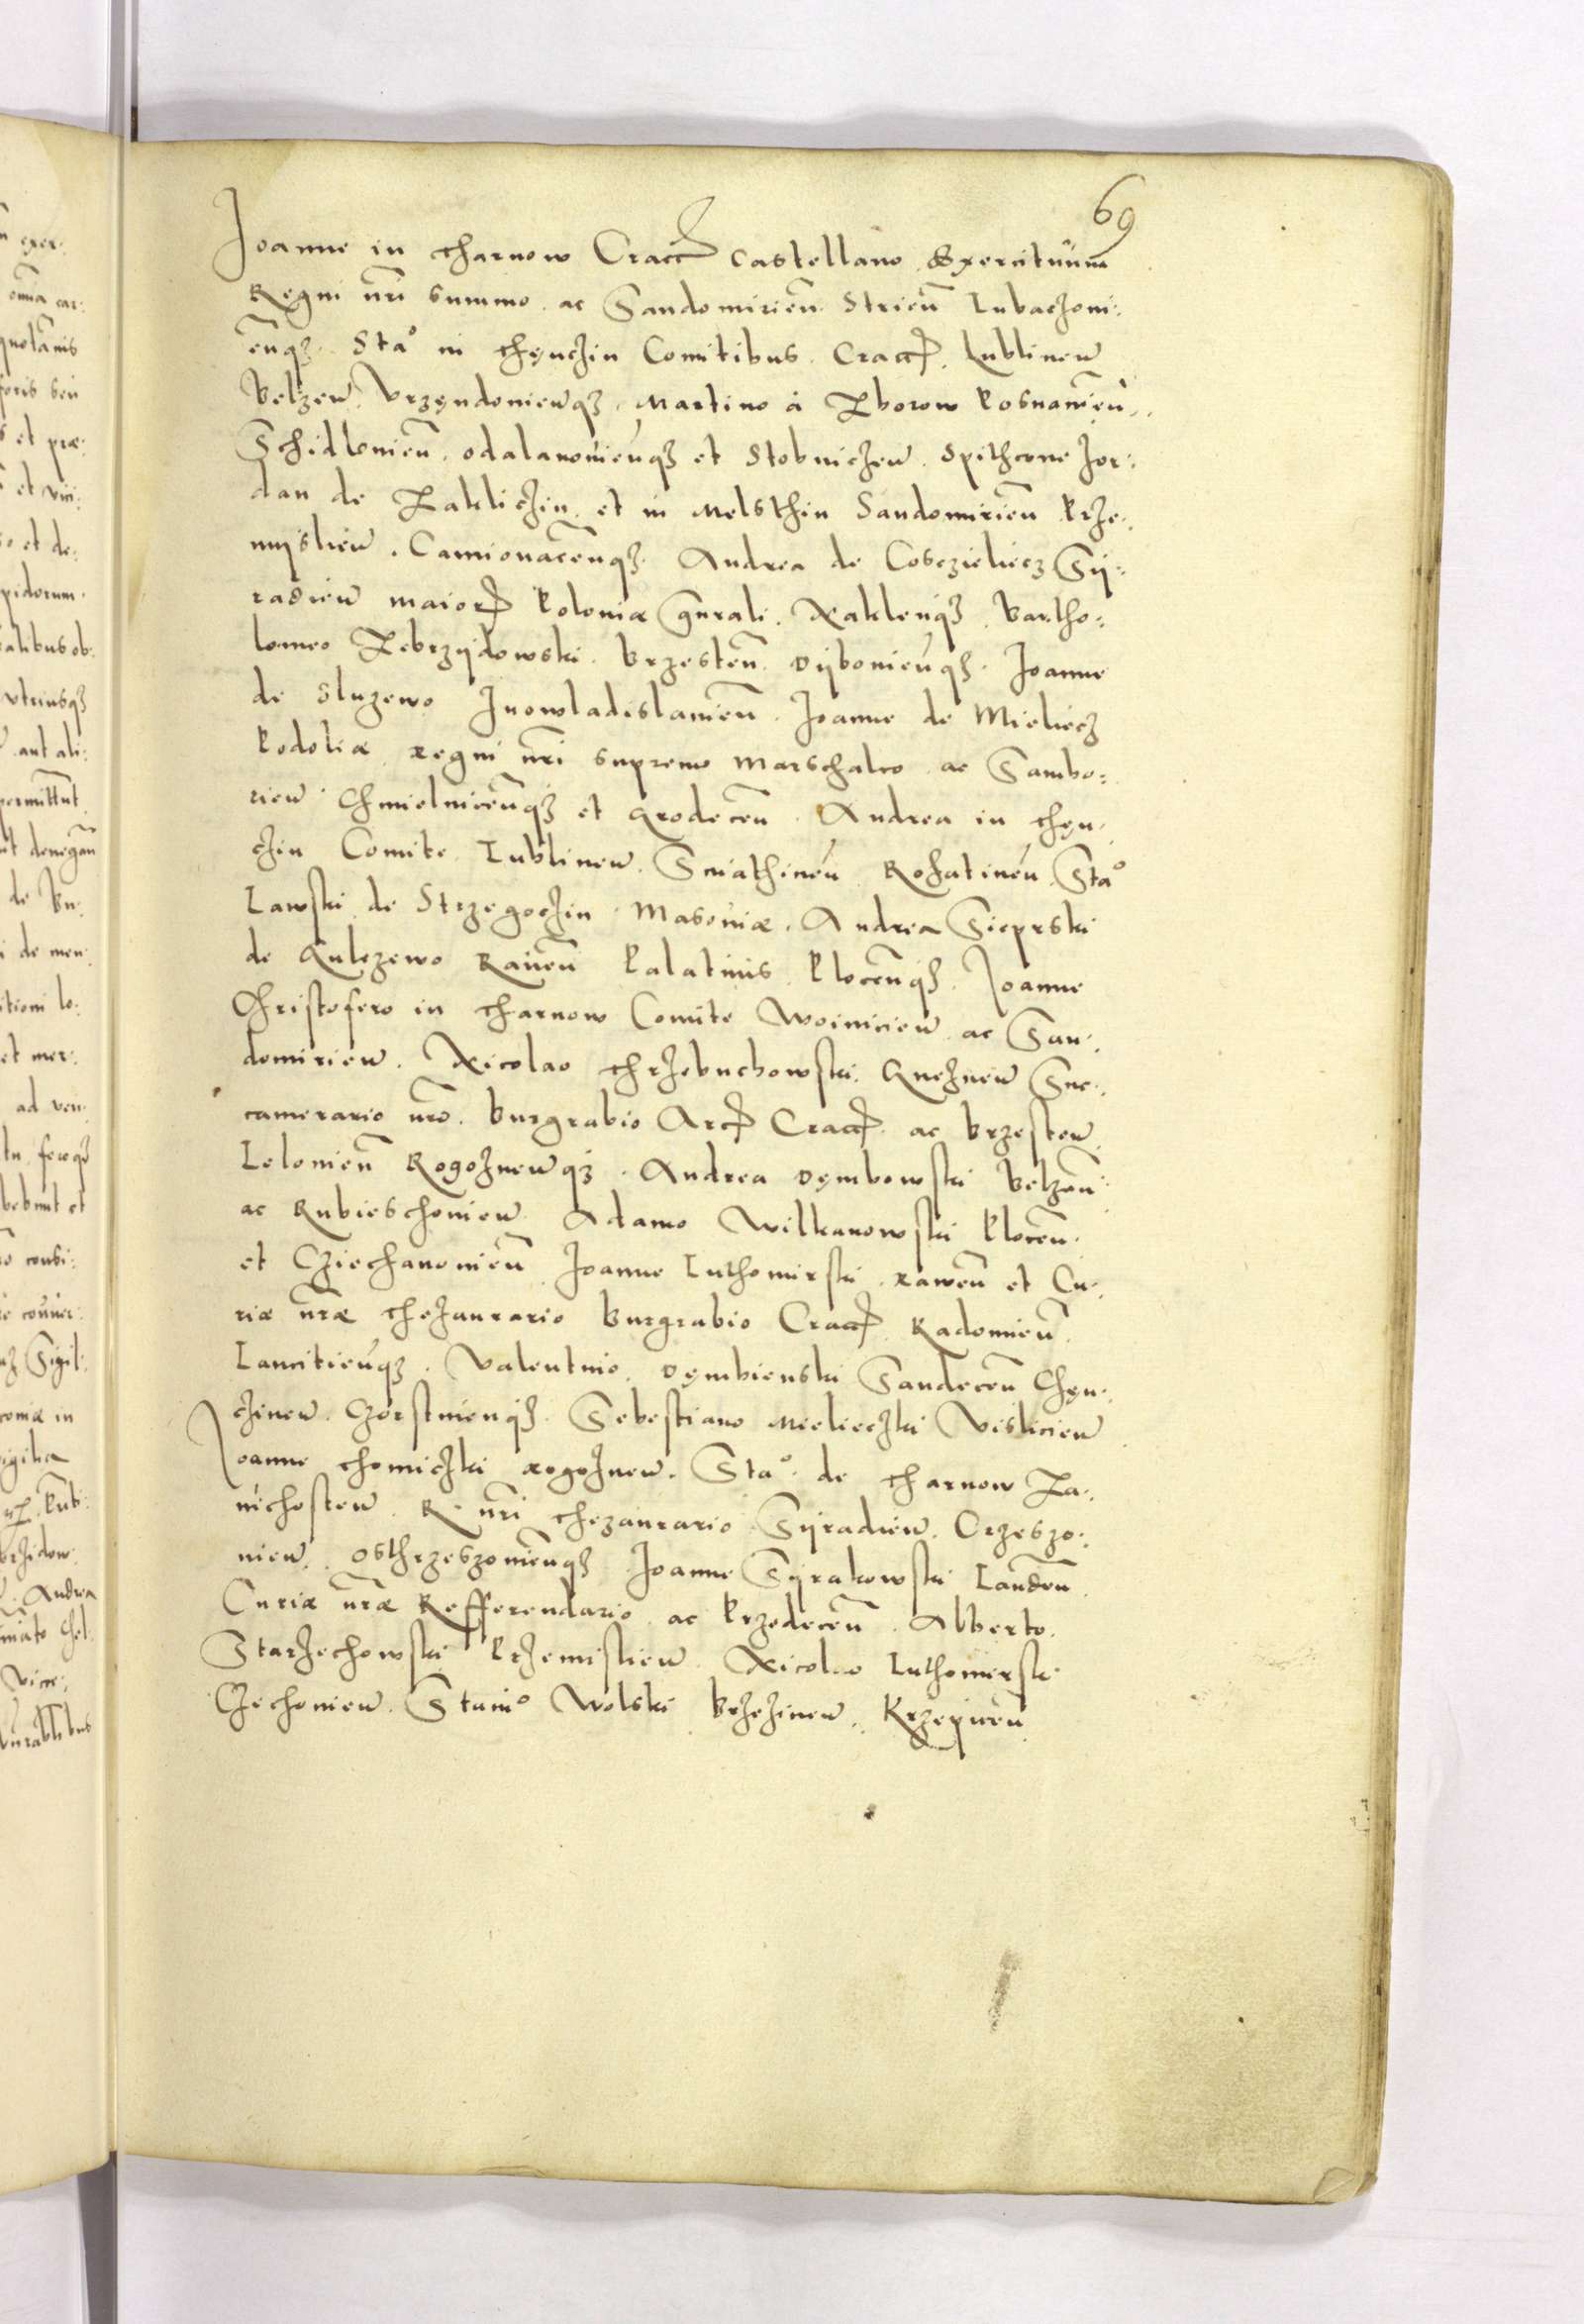 69
Joanne in Tharnow Cracꝭ Castellano Exercituum
Regni nr̄i summo ac Sandomirien̄ Strien̄ Lubaczoui:
en̄qꝫ Sta° in Thęnczin Comitibus Cracꝭ Lublinen̄
Belzen̄ Vrzęndouien̄qꝫ Martino à Zborow Posnanien̄
Schidlouien̄ Odalanouien̄qꝫ et Stobniczen̄ Spithcone Jor:
dan de Zakliczin et in Melsthin Sandomirien̄ Prze:
mijslien̄ Camionacen̄qꝫ Andrea de Cosczieliecz Sij:
radien̄ maiorꝭ Poloniæ gn̄rali Naklen̄qꝫ Bartho:
lomeo Zebrzijdowski Brzesten̄ Dijbouien̄qꝫ Joanne
de Sluzewo Juowladislauien̄ Joanne de Mieliecz
Podoliæ regni nr̄i supremo Marschalco ac Sambo:
rien̄ Chmielnicen̄qꝫ et Grodecen̄ Andrea in Thęn:
czin Comite Lublinen̄ Sniathinen̄ Rohatinen̄ Sta°
Lawski de Strzegoczin Masouiæ Andrea Sieprski
de Gulczewo Rauen̄ Palatinis Plocen̄qꝫ Joanne
Christofero in Tharnow Comite Woinicien̄ ac San:
domirien̄ Nicolao Thrzebuchowski Gneznen̄ Suc:
camerario nr̄o Burgrabio Arcꝭ Cracꝭ ac Brzesten̄
Lelouien̄ Rogoznen̄qꝫ Andrea Dęmbowski Belzen̄
ac Rubieschouien̄ Adamo Wilkanowski Plocen̄
et Cziechanouien̄ Joanne Luthomirski rawen̄ et Cu:
riæ nr̄æ Thezaurario Burgrabio Cracꝭ Radomien̄
Lancitien̄qꝫ Valentino Dęmbienski Sandecen̄ Chęn:
czinen̄ Czorstinen̄qꝫ Sebestiano Mielieczki Vislicien̄
Joanne Thomiczki rogoznen̄ Sta° de Tharnow Za:
uichosten̄ R nr̄i Thezaurario Sijradien̄ Crzeszo:
uien̄ Osthrzeszouien̄qꝫ Joanne Sijrakowski Lauden̄
Curiæ nr̄æ Refferendario ac Przedecen̄ Alberto
Starzechowski Przemislien̄ Nicolao Luthomirski
Czechouien̄ Stani° Wolski Brzezinen̄ Krzepicen̄